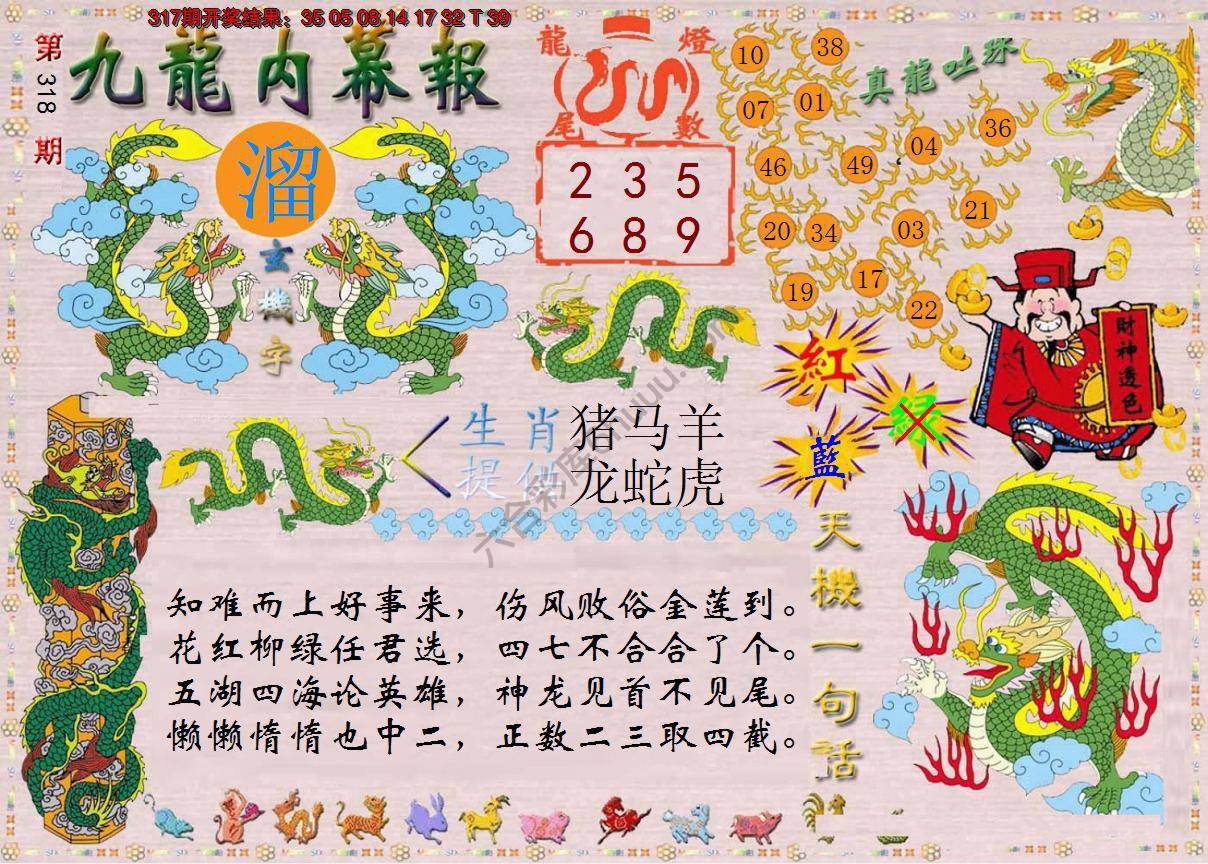 317期开奖结果：35 05 08 14 17 32 T 39
第318期
九龍内幕報
溜
玄機字
龍燈
尾數
2 3 5
6 8 9
真龍吐珠
10
38
07
01
46
49
04
36
20
34
03
21
19
17
22
財神透色
紅
绿
藍
生肖
提供
猪马羊
龙蛇虎
天機一句話
知难而上好事来，伤风败俗金莲到。
花红柳绿任君选，四七不合合了个。
五湖四海论英雄，神龙见首不见尾。
懒懒惰惰也中二，正数二三取四截。